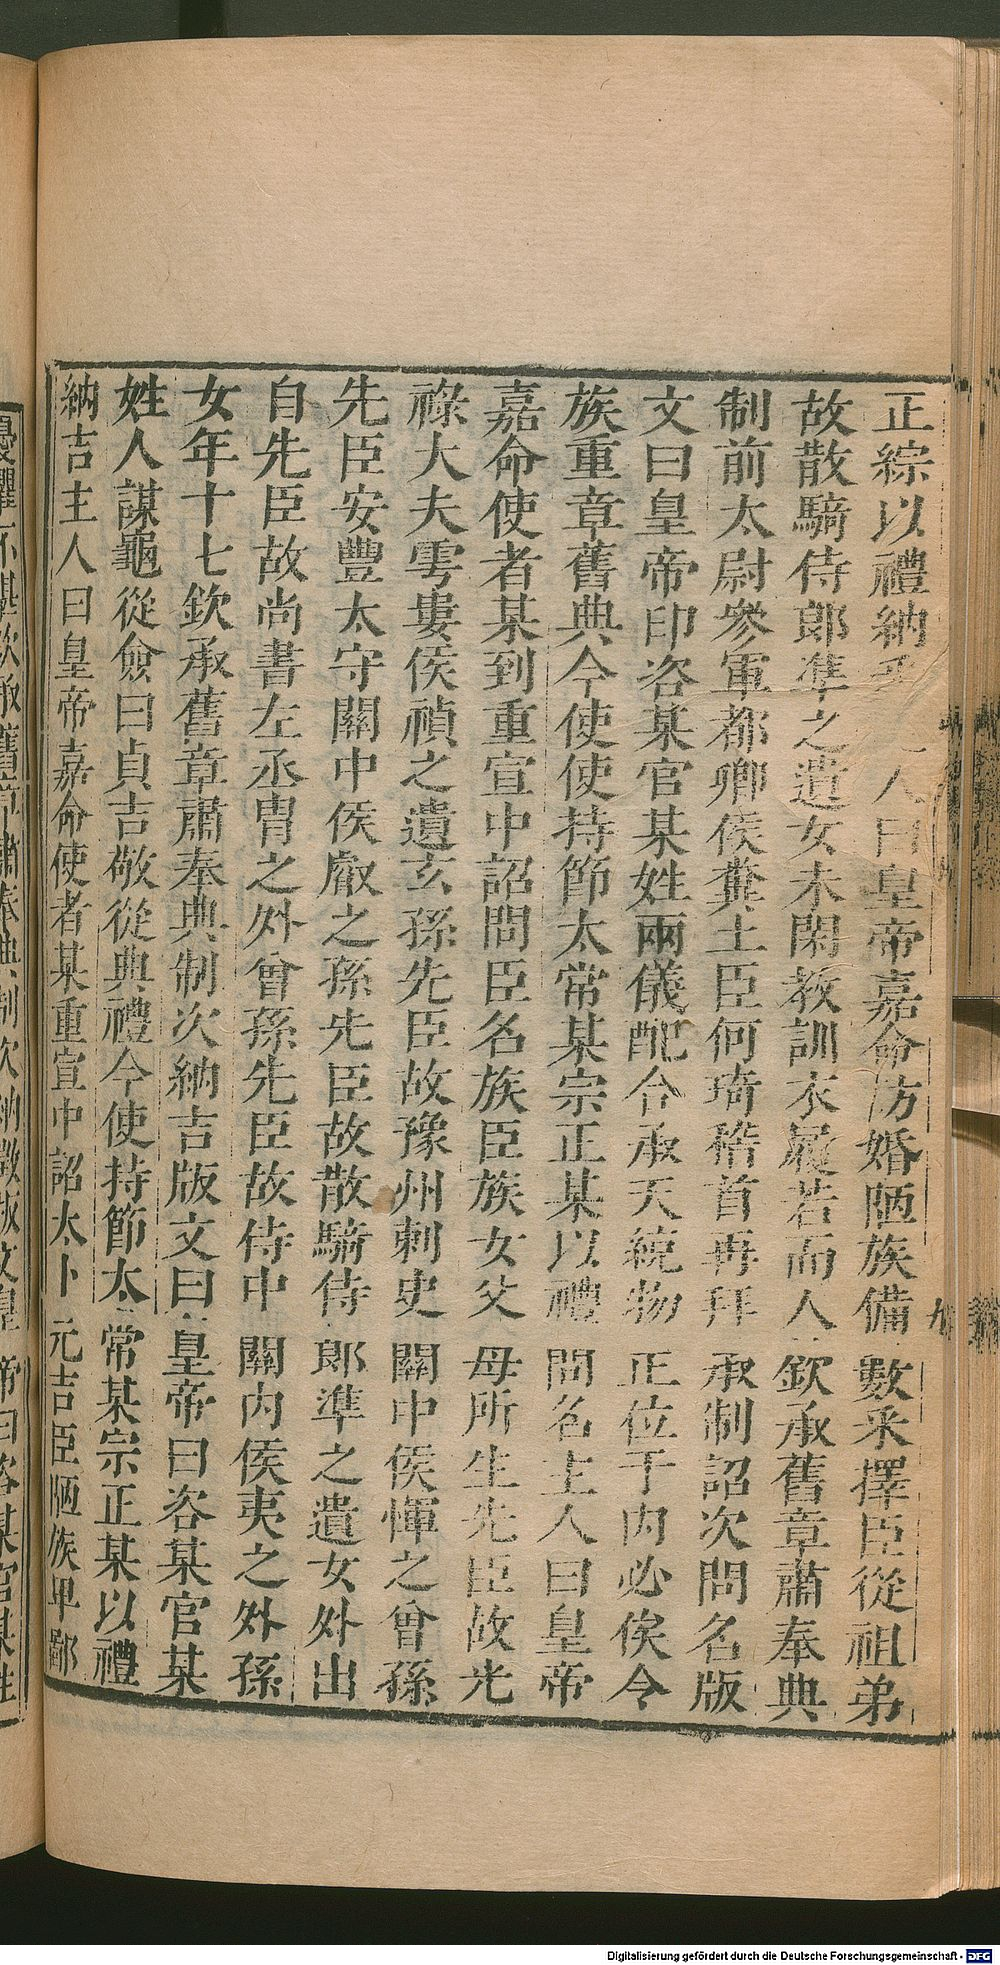 正綜以禮納采 人曰皇帝嘉命訪婚陋族備數采擇臣從祖弟
故散騎侍郎準之遺女未閑教訓衣履若而人欽承舊章肅奉典
制前太尉參軍都鄉侯糞土臣何琦稽首再拜承制詔次問名版
文曰皇帝印咨某官某姓兩儀配合承天統物正位于內必俟令
族重章舊典今使使持節太常某宗正某以禮問名主人曰皇帝
嘉命使者某到重宣中詔問臣名族臣族女父母所生先臣故光
祿大夫雩婁侯禎之遺玄孫先臣故豫州刺史關中侯惲之曾孫
先臣安豐太守關中侯叡之孫先臣故散騎侍郎準之遺女外出
自先臣故尚書左丞冑之外曾孫先臣故侍中關內侯夷之外孫
女年十七欽承舊章肅奉典制次納吉版文曰皇帝曰咨某官某
姓人謀龜從僉曰貞吉敬從典禮今使持節太常某宗正某以禮
納吉主人曰皇帝嘉命使者某重宣中詔太卜元吉臣陋族卑鄙
憂懼不堪欽承舊章肅奉典制次納徵版文皇帝曰咨某官某姓
九
Digitalisierung gefördert durch die Deutsche Forschungsgemeinschaft - DFG